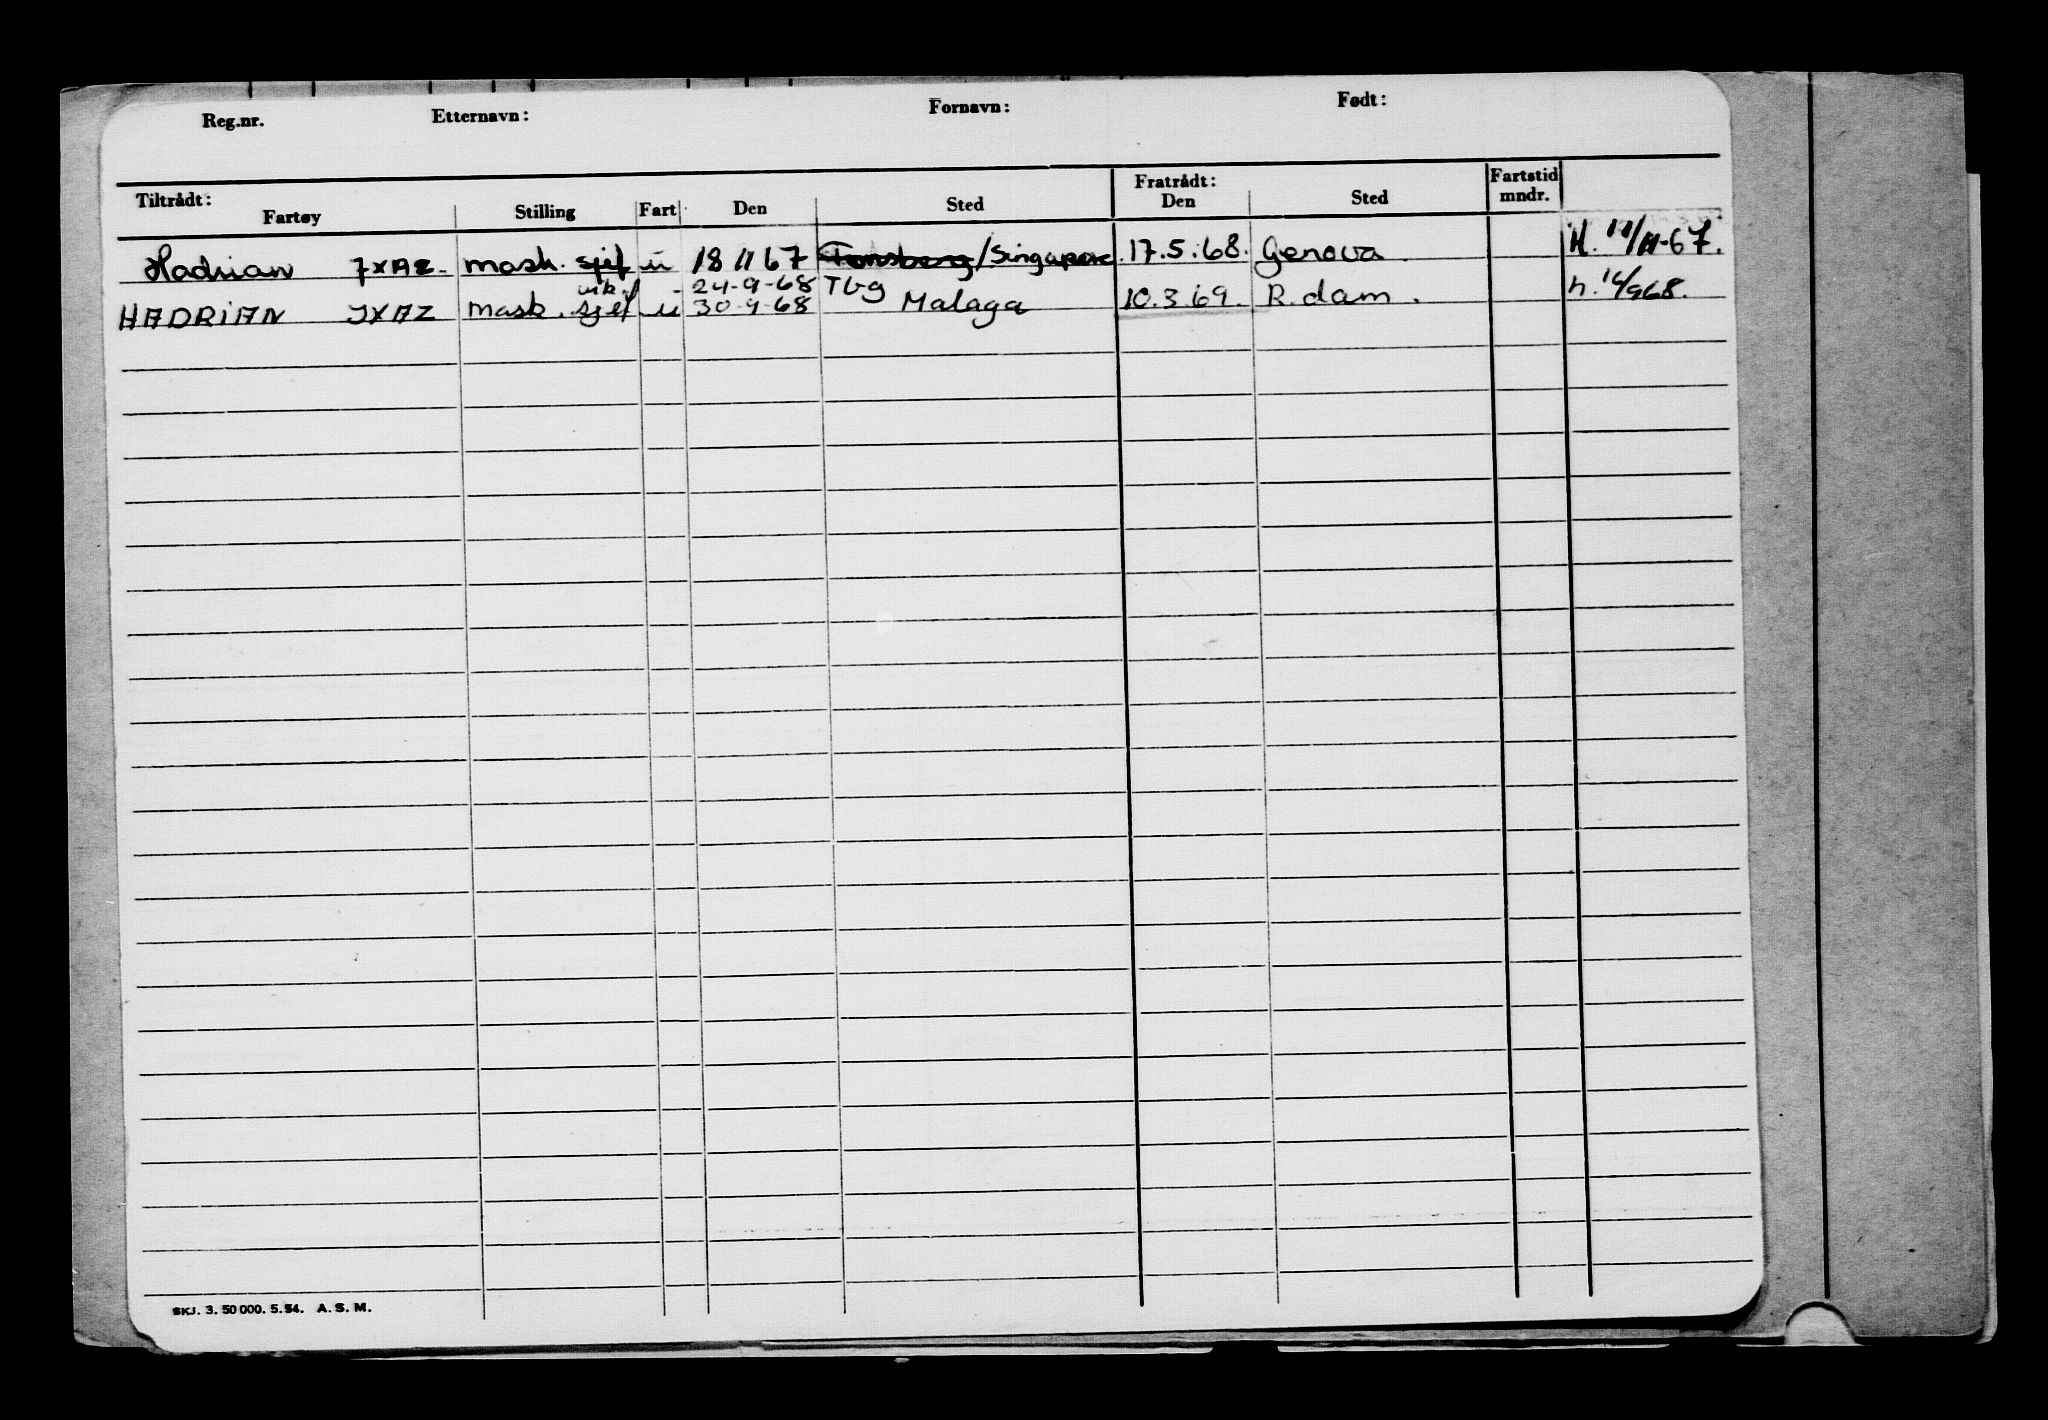 Reg.nr. Etternavn: Fornavn: Født:
Tiltrådt: Fratrådt: Fartstid
Fartøy Stilling Fart Den Sted Den Sted mndr.
Hadrian JXAZ mask. sjef u 18 11 67 Tønsberg/Singapore 17.5.68. Genova. H. 11/11-67.
vik. 24-9-68 Tbg
HADRIAN JXAZ mask. sjef u 30-9-68 Malaga 10.3.69. R.dam. h. 968.
SKJ. 3. 50 000. 5. 54. A. S. M.